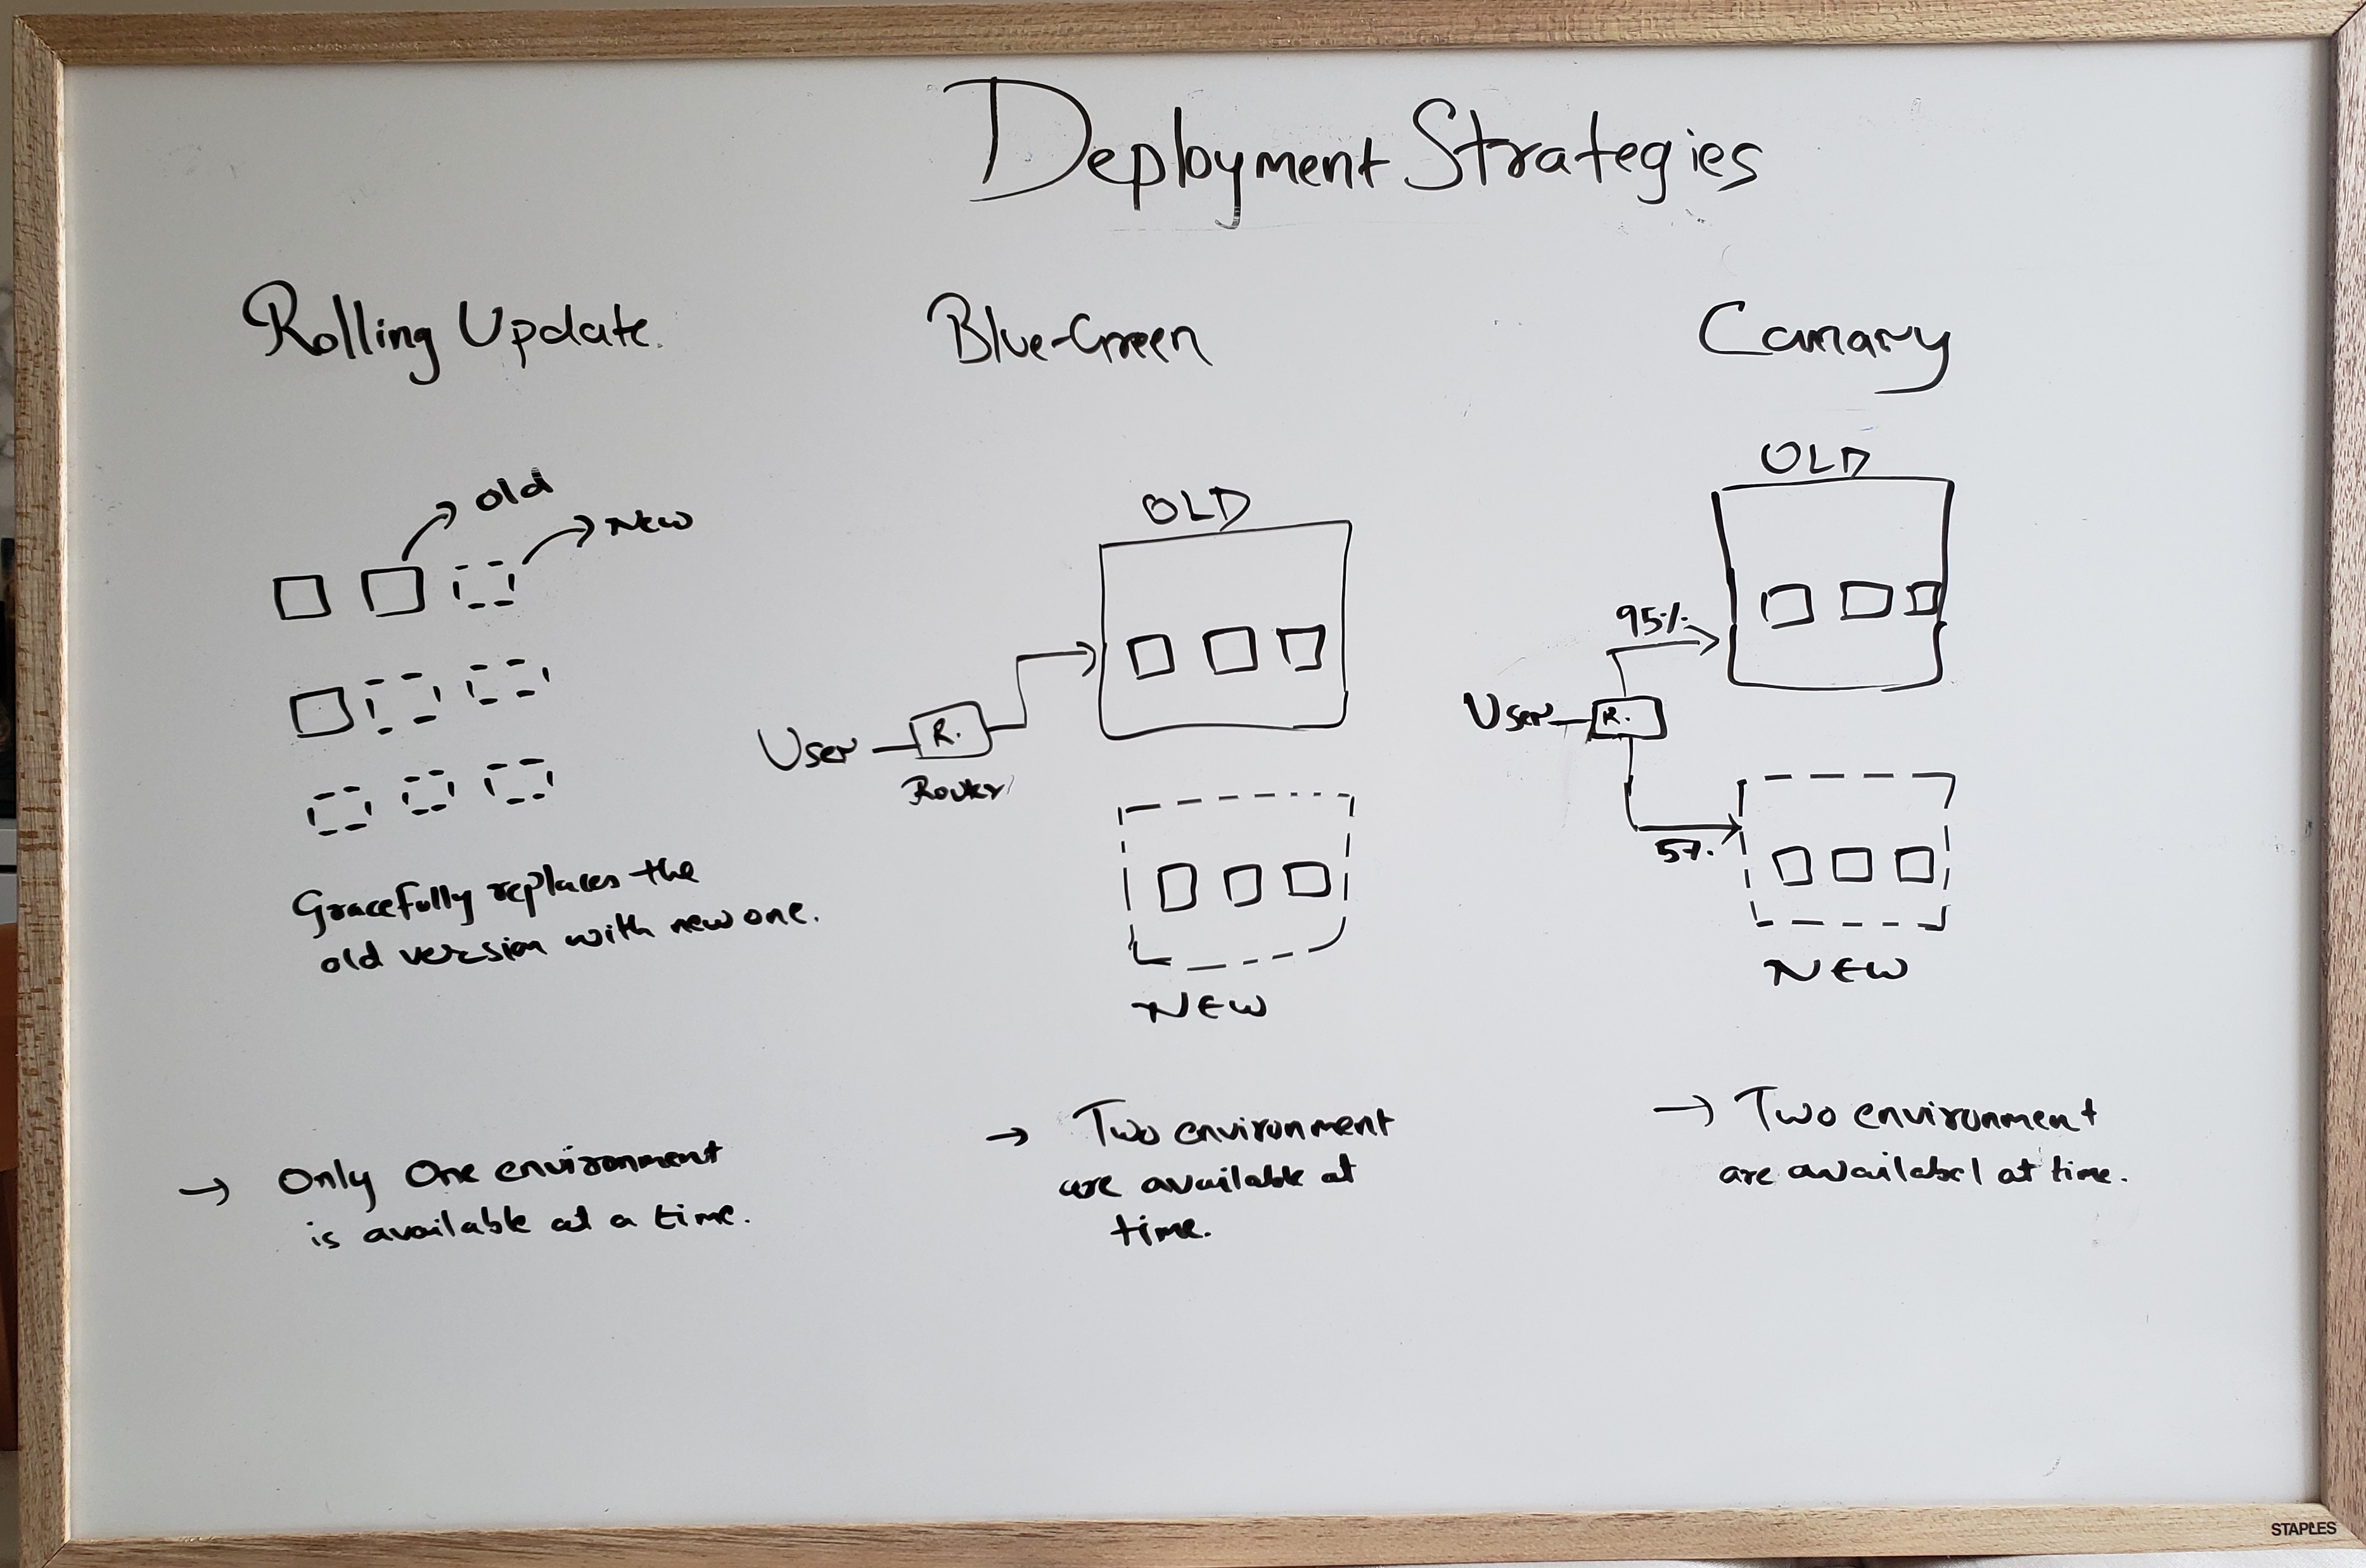 Deployment Strategies
Rolling Update.
old
New
Gracefully replaces the
old version with new one.
→ Only One environment
is available at a time.
Blue-Green
OLD
User
R.
Router
NEW
→ Two environment
are available at
time.
Canary
OLD
95%
User
R.
5%.
NEW
→ Two environment
are availabel at time.
STAPLES